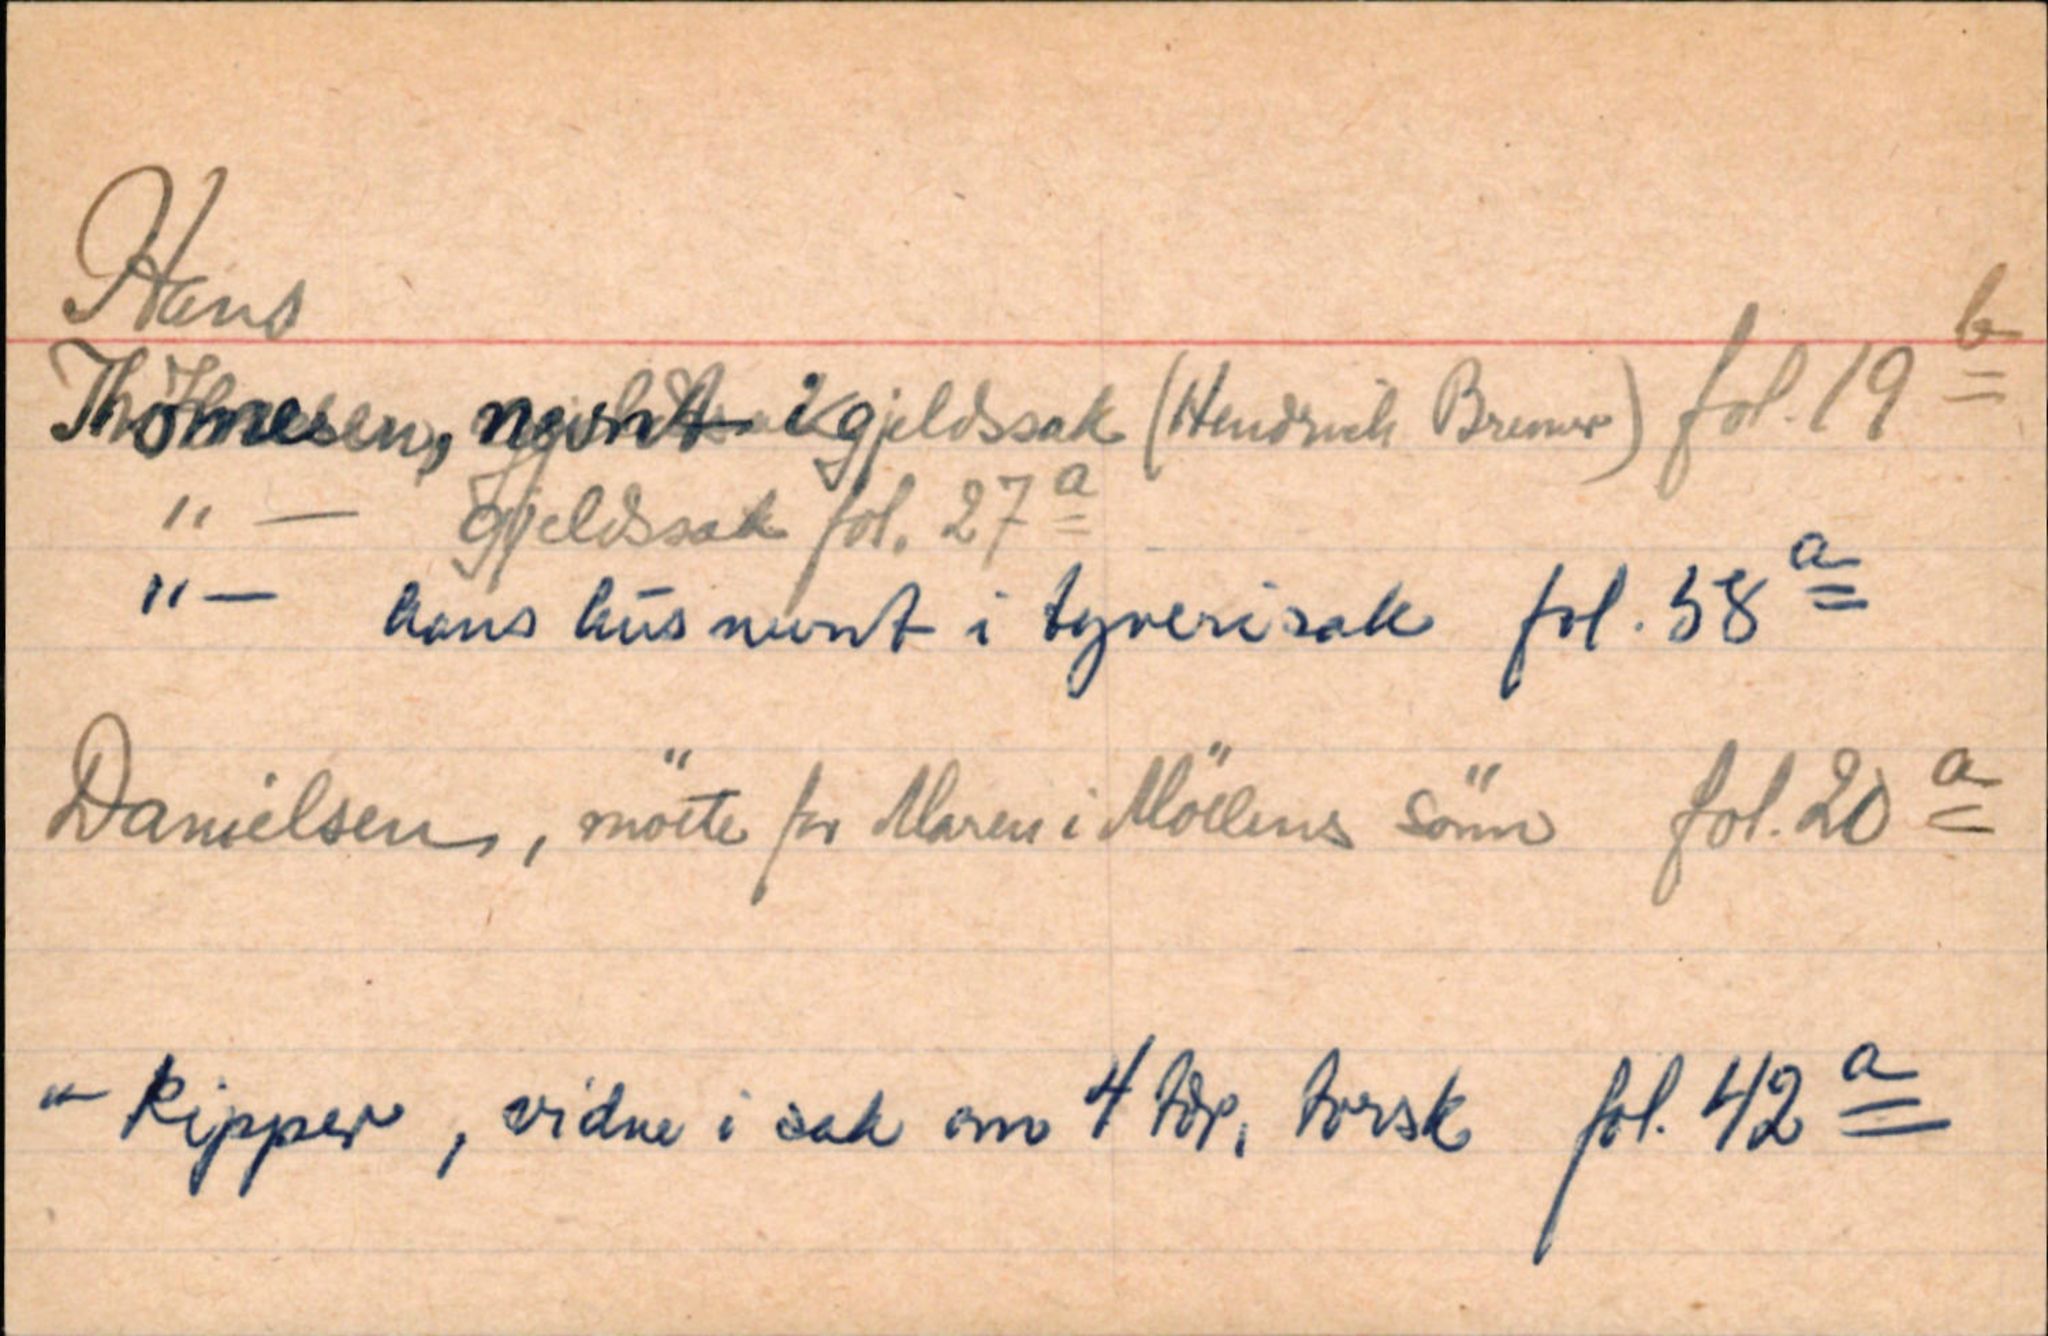 Hans
Thömesen, nevnt i gjeldssak (Hendrich Bremer) fol. 19 b
" — Gjeldssak fol. 27 a
" — hans hus nevnt i tyverisak fol. 58 a
Danielsen, mötte for Maren i Möllens sönn fol. 20 a
" Kipper, vidne i sak om 4 tdr. torsk fol. 42 a